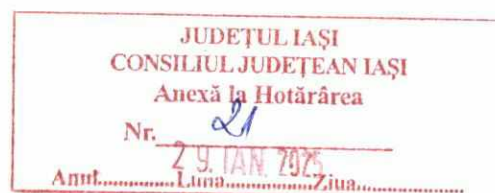 JUDEȚUL IAȘI
CONSILIUL JUDEȚEAN IAȘI
Anexă la Hotărârea
Nr. 21
29. IAN. 2025
Anul..............Luna..................Ziua......................